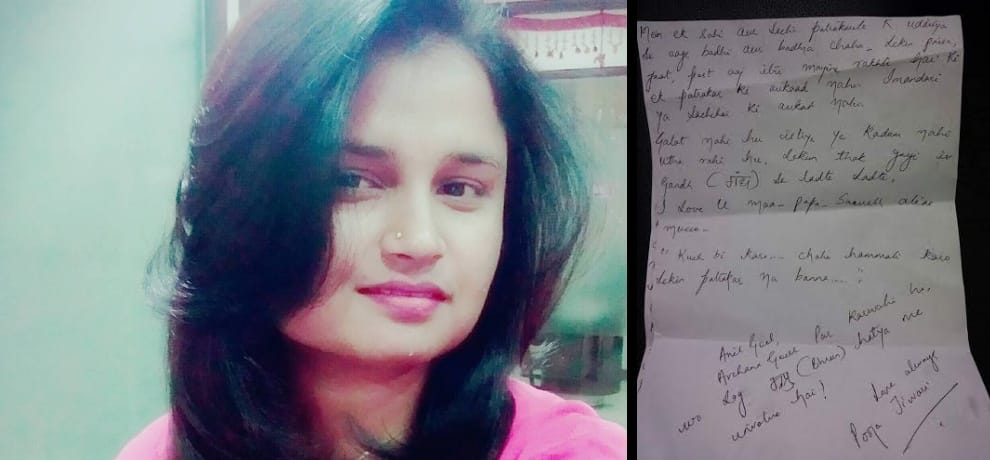 Men ek sahi aur sachi patrakarita k uddeshya
se aage badhi aur badhna chaha. Lekin power,
post, aaj itne mayine rakhte hai ki
ek patrakar ki aukaad nahi Imandari
ya sachchai ki aukad nahi
Galat nahi hu isliye ye Kadam nahi
utha rahi hu. Lekin thak gayi is
Gandh (गंध) se ladte Ladte.
I Love U maa- Papa-
" Kuch bi karo.... chahe karo
Lekin patrakar na banna.... "
Anil Goel,
Archana Goel Par Karwahi ho,
wo Log (Bhrun) hatya me
hai!
Love always
Pooja Tiwari